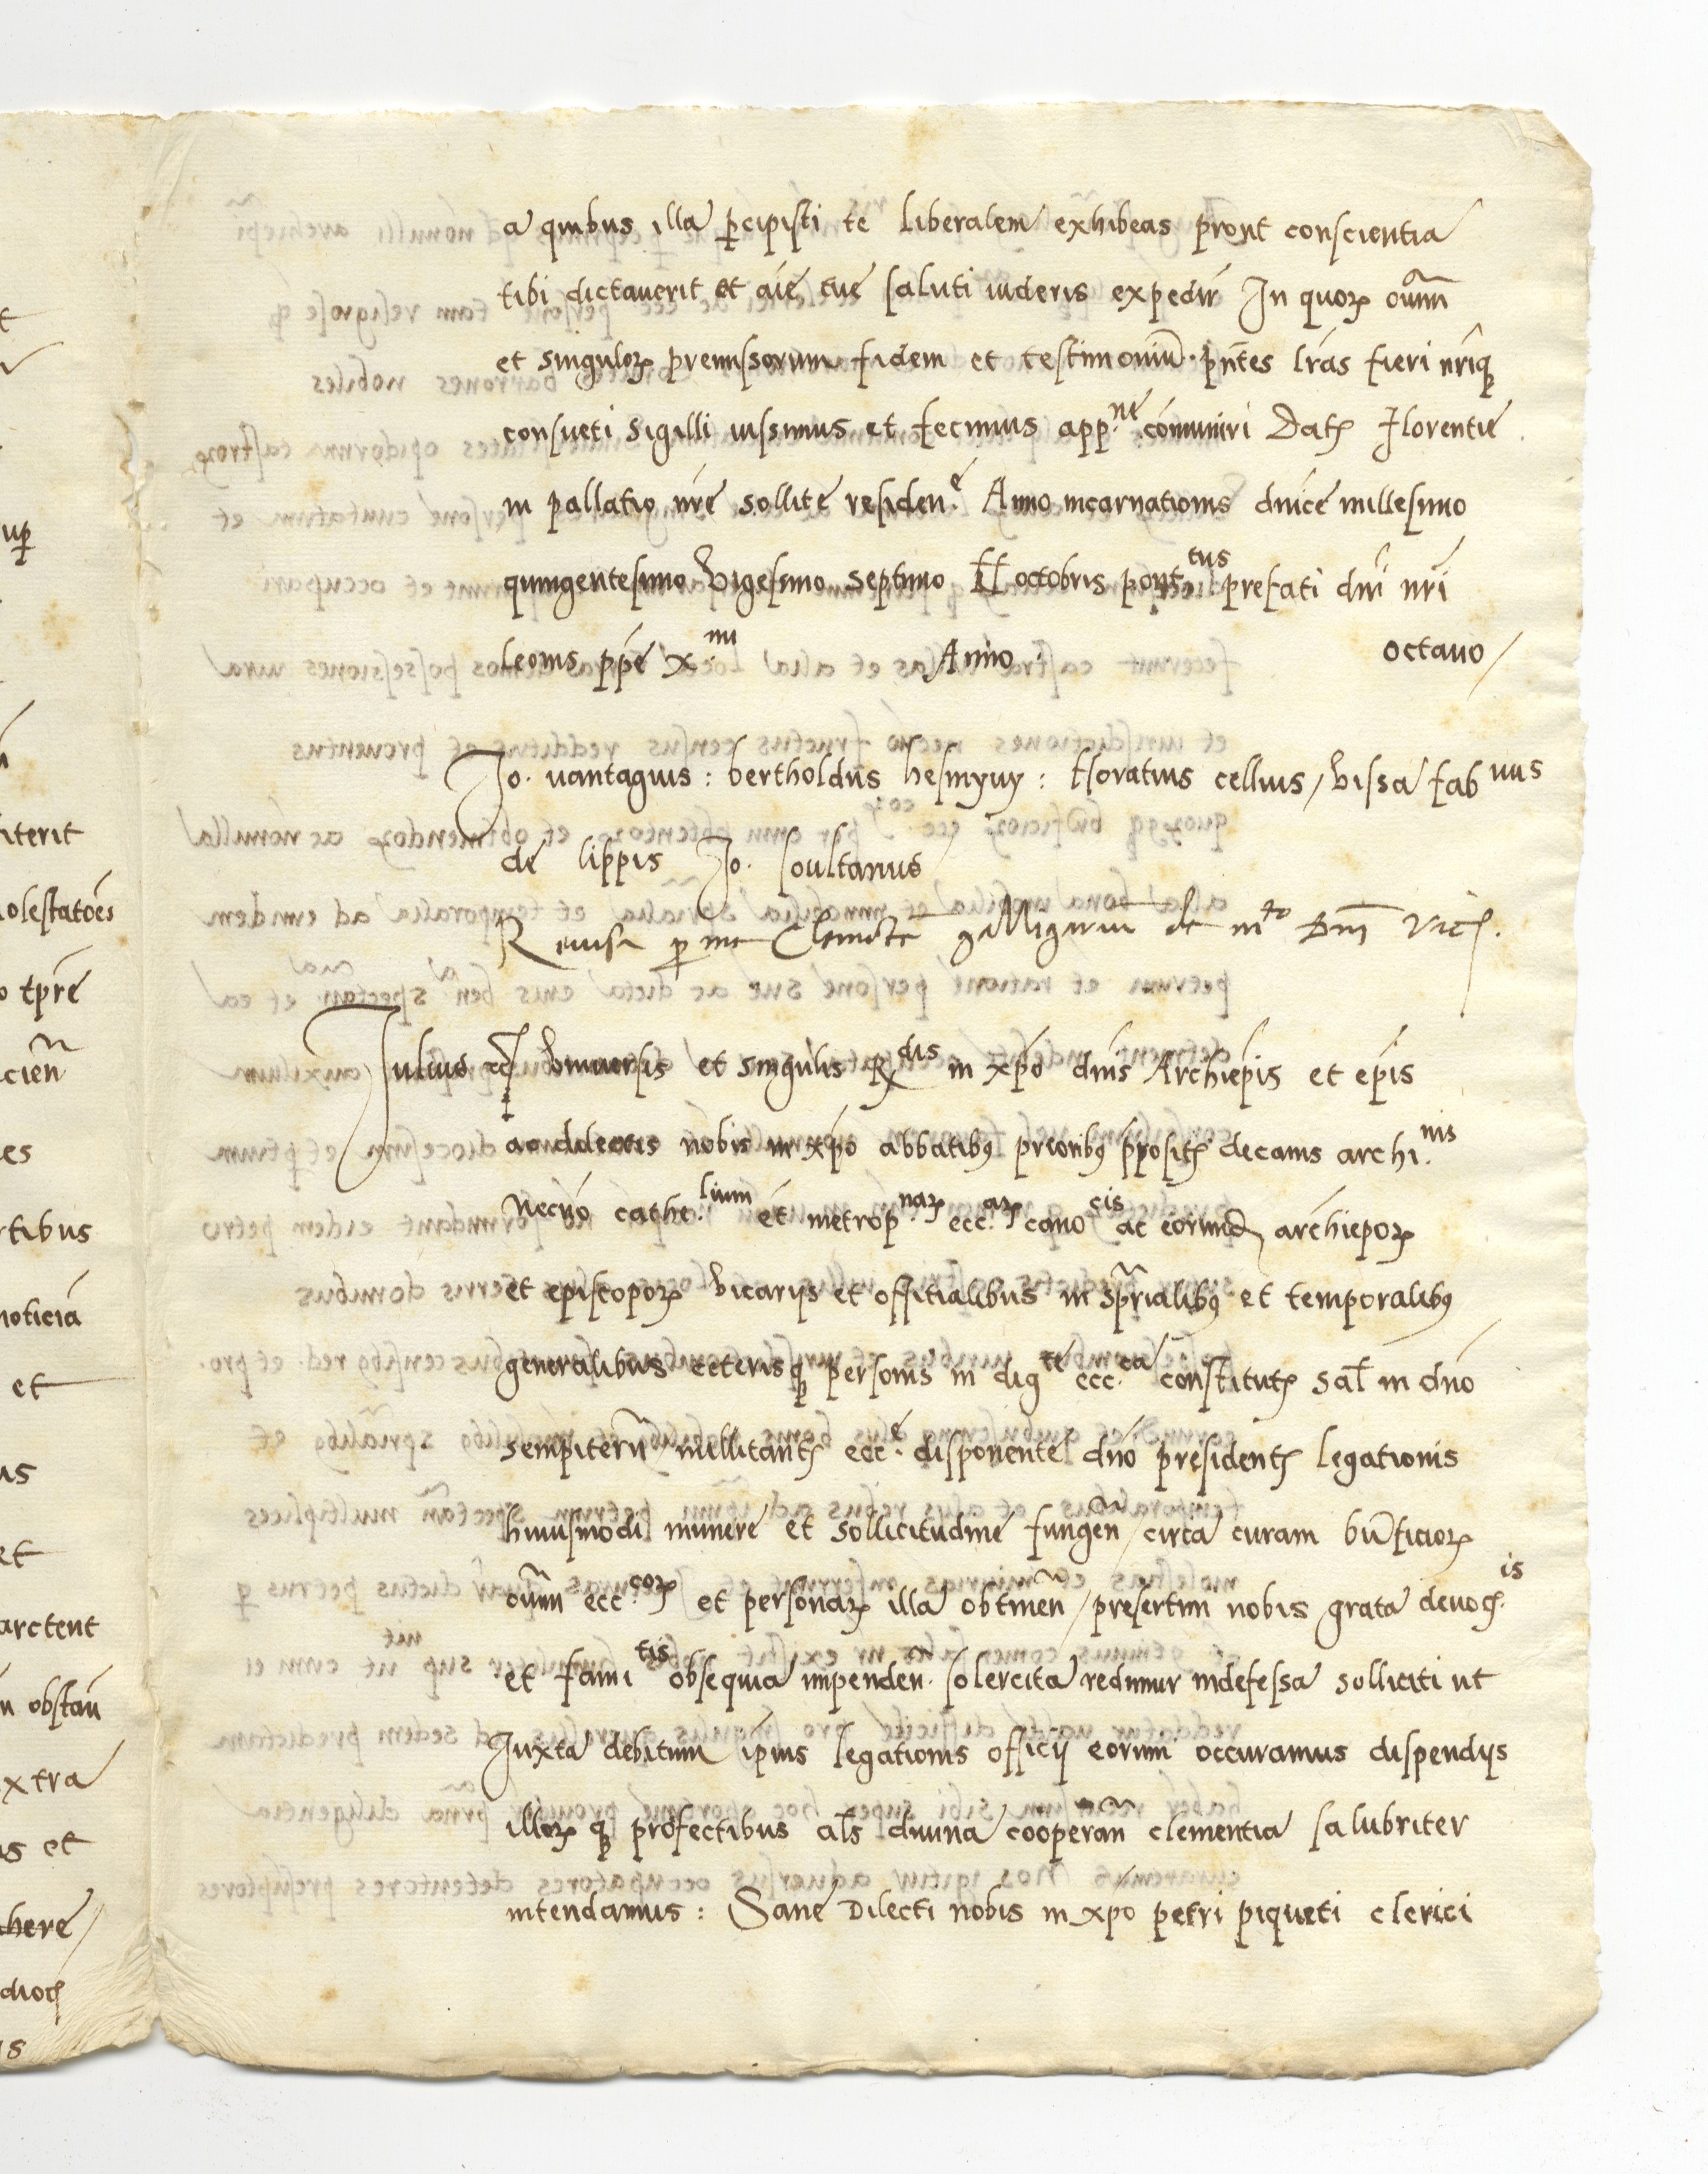 a quibus illa ꝑcipisti te liberalem exhibeas prout conscientia
tibi dictauerit et aīe tue saluti uideris expedir̄ In quoꝝ oūm̄
et singuloꝝ premissorum fidem et testimoniū pn̄tes lr̄as fieri nr̄iqꝫ
consueti sigilli iussimus et fecimus app.ne cōmuniri Datꝭ florentie
in pallatio nr̄e sollite residen.e Anno incarnationis dn̄ice millesimo
quingentesimo vigesimo septimo octobris pont.tus prefati dn̄i nr̄i
leonis ppe X.mi Anno octauo /
Jo. uantaguis : bertholdus hesmyuy : Horatius cellius / vissa fab uus
de lippis Jo. soultanus
Reuisa ꝑ me
Julius ⁊cꝭ vniuersis et singulis Rdis in xp̄o dn̄is Archiep̄is et ep̄is
ac dilectis nobis in xp̄o abbatibꝰ prioribꝰ ꝓpositꝭ decanis archi.nis
Necnō cathe.lium et metrop.naꝝ ecc.aꝝ cano cis ac eorundꝭ archiepoꝝ
et episcopoꝝ vicarijs et offitialibus in sp̄rialibꝰ et temporalibꝰ
generalibus ceterisqꝫ personis in digte ecc.ca constitutꝭ Sal̄ in dn̄o
sempiternā̄ millitantꝭ ecc.e disponente dn̄o presidentꝭ legationis
huiusmodi munere et sollicitudine fungen̄ / circa curam bn̄ficioꝝ
oūm̄ ecc.coꝝ et personaꝝ illa obtinen̄ / presertim nobis grata deuocꝭ.is
et fami tis obsequia impenden̄. solercita redimur indefessa solliciti ut
Juxta debitum ip̄ius legationis officij eorum occuramus dispendijs
illoꝝ qꝫ profectibus al̄s diuina cooperan̄ clementia salubriter
intendamus : Sane Dilecti nobis in xp̄o petri piqueti clerici